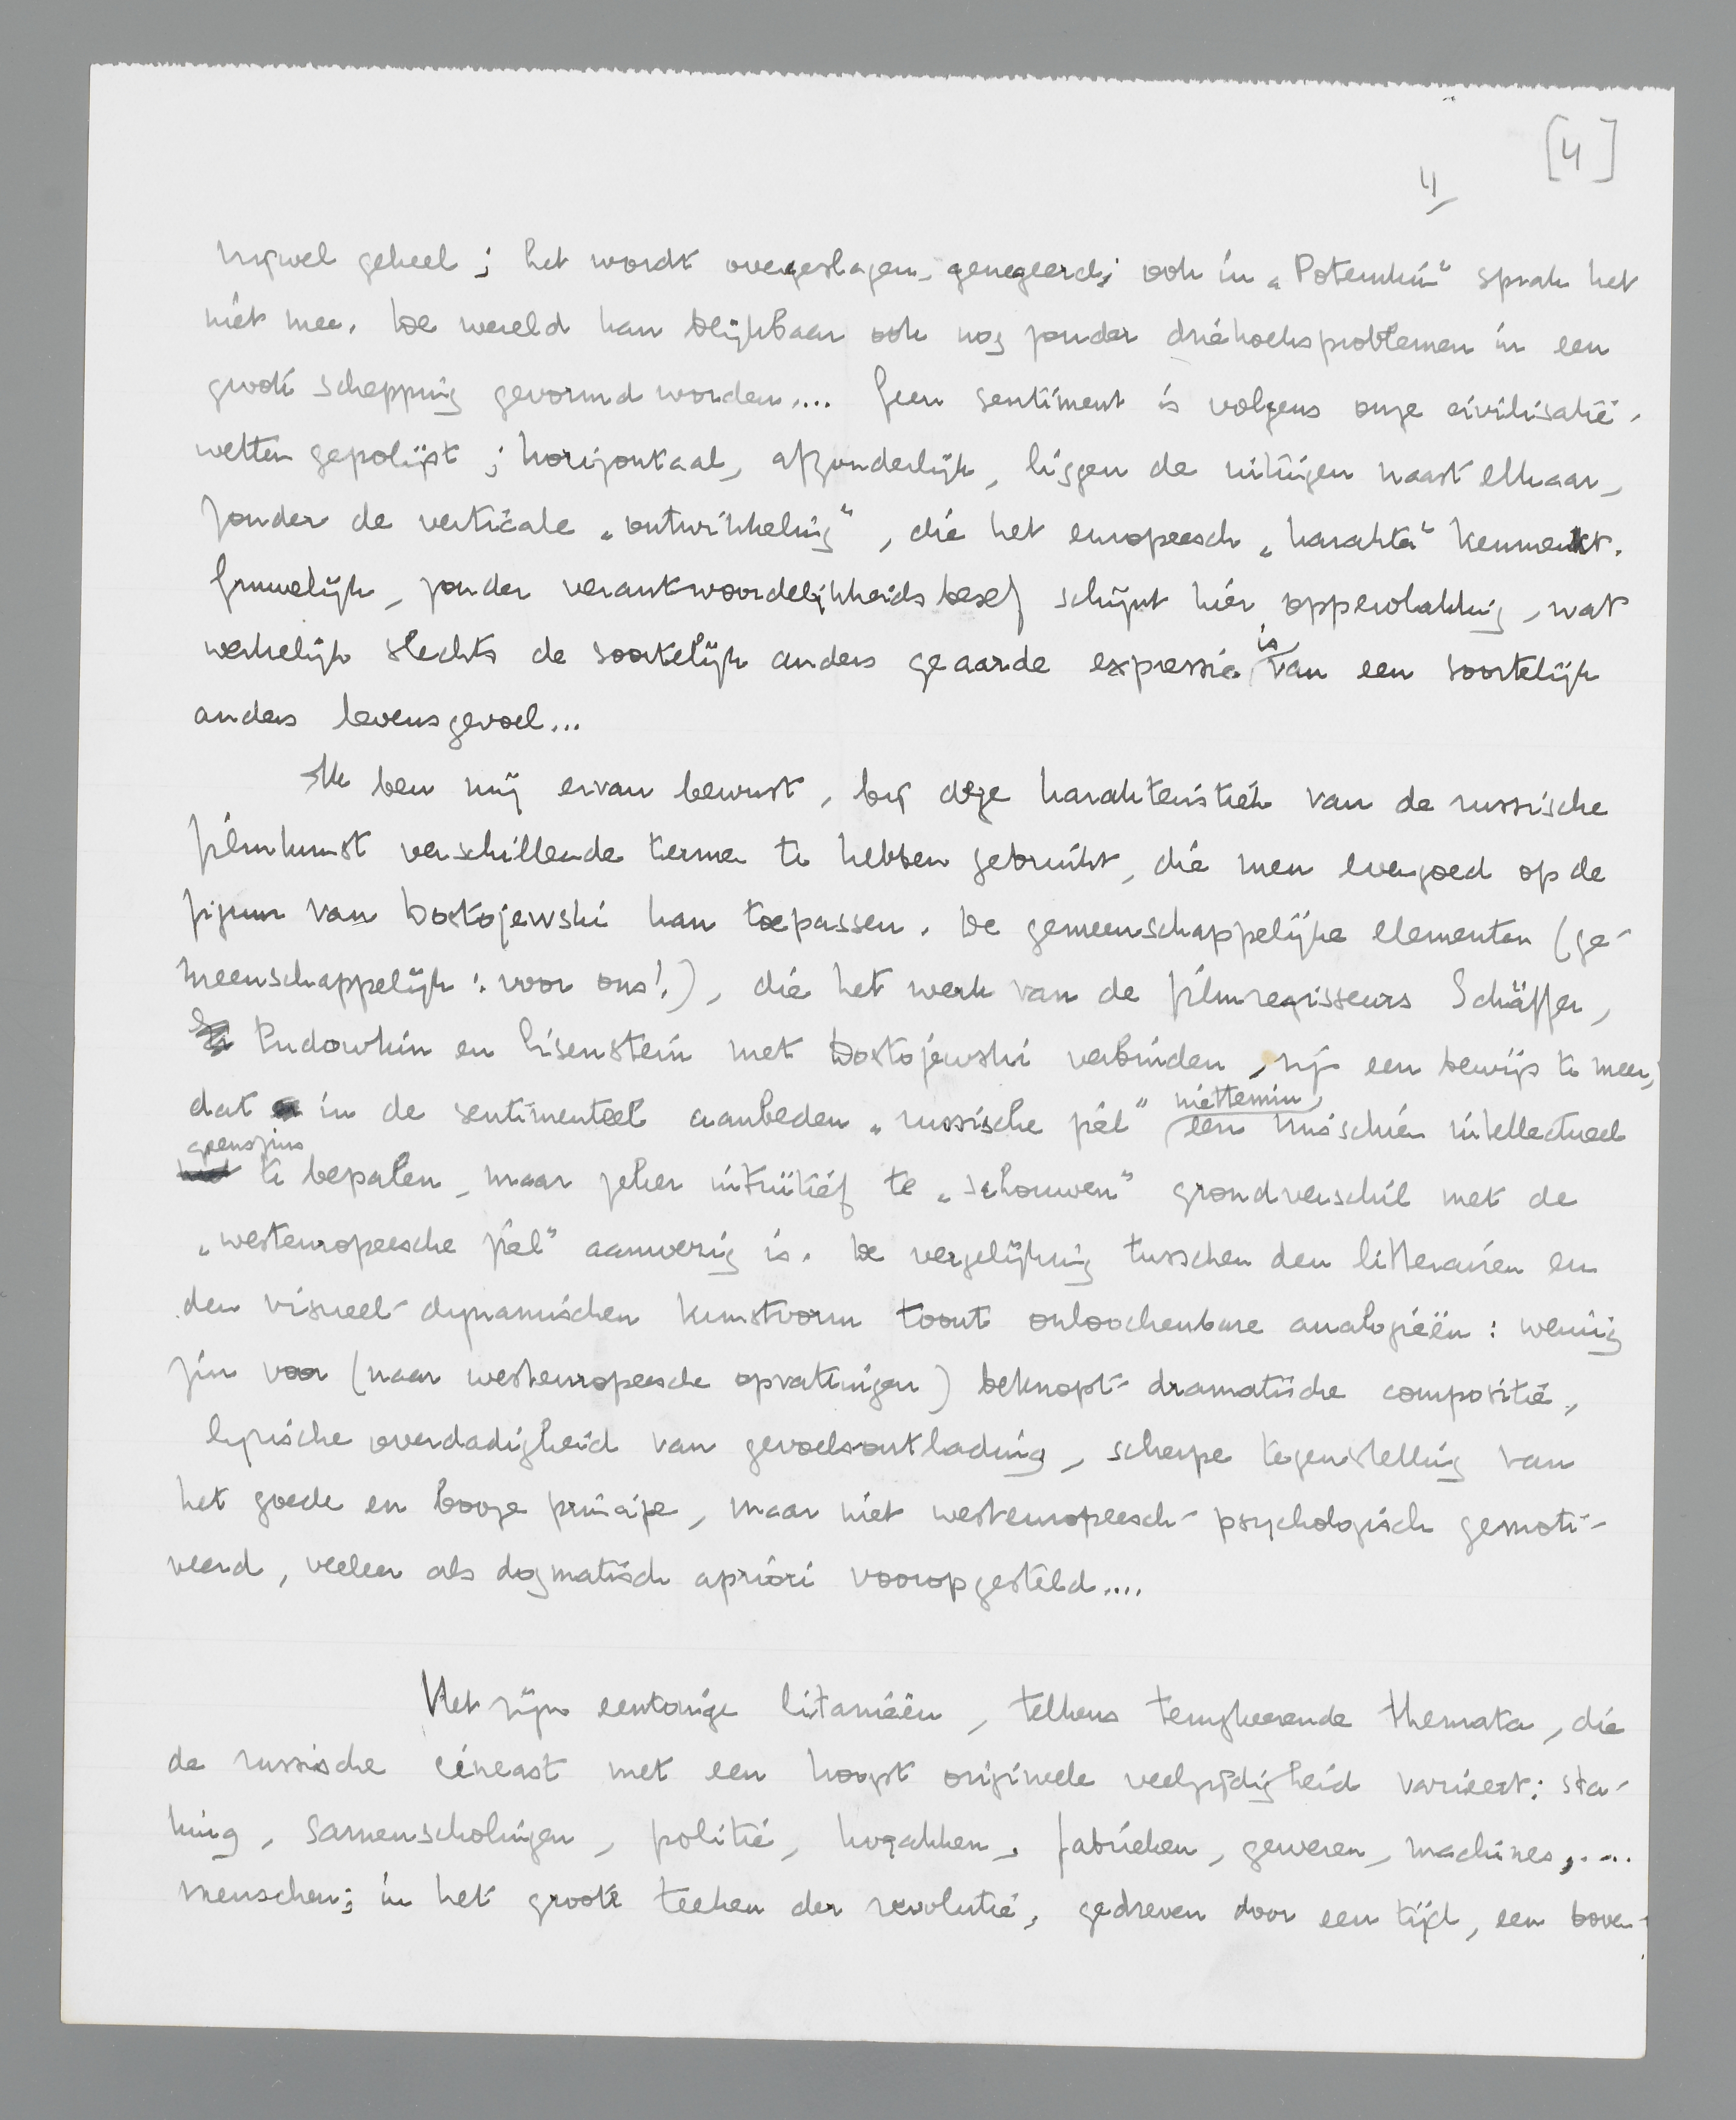 [4]
4
nagenoeg geheel; het wordt overgeslagen, genegeerd; ook in „Potemkin” sprak het
niet mee. De wereld kan blijkbaar ook nog zonder driehoeksproblemen in een
groote schepping gevormd worden.... Geen sentiment is volgens onze civilisatie-
wetten gepolijst; horizontaal, afzonderlijk, liggen de uitingen naast elkaar,
zonder de verticale „ontwikkeling”, die het europeesch „karakter” kenmerkt.
Gruwelijk, zonder verantwoordelijkheidsbesef schijnt hier oppervlakkig, wat
werkelijk slechts de soortelijk anders geaarde expressie is van een soortelijk
anders levensgevoel...
Ik ben mij ervan bewust, bij deze karakteristiek van de russische
filmkunst verschillende termen te hebben gebruikt, die men evengoed op de
figuur van Dostojewski kan toepassen. De gemeenschappelijke elementen (ge-
meenschappelijk: voor ons!), die het werk van de filmregisseurs Schäffer,
Pudowkin en Eisenstein met Dostojewski verbinden, zijn een bewijs te meer,
dat in de sentimenteel aanbeden „russische ziel” niettemin een misschien intellectueel
geenszins te bepalen, maar zeker intuïtief te „schouwen” grondverschil met de
„westeuropeesche ziel” aanwezig is. De vergelijking tusschen den litterairen en
den visueel-dynamischen kunstvorm toont onloochenbare analogieën: weinig
zin voor (naar westeuropeesche opvattingen) beknopt-dramatische compositie,
lyrische overdadigheid van gevoelsontlading, scherpe tegenstelling van
het goede en booze principe, maar niet westeuropeesch-psychologisch gemoti-
veerd, veeleer als dogmatisch apriori vooropgesteld....
Het zijn eentonige litanieën, telkens terugkeerende themata, die
de russische cineast met een hoogst origineele veelzijdigheid varieert: sta-
king, samenscholingen, politie, kozakken, fabrieken, geweren, machines,....
menschen; in het groote teeken der revolutie, gedreven door een tijd, een boven-